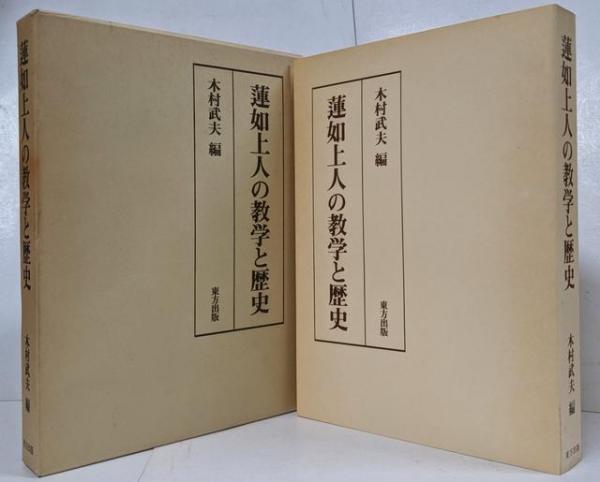 蓮如上人の教学と歴史
木村武夫 編
蓮如上人の教学と歴史
木村武夫 編
東方出版
木村武夫 編
蓮如上人の教学と歴史
東方出版
蓮如上人の教学と歴史
木村武夫 編
東方出版